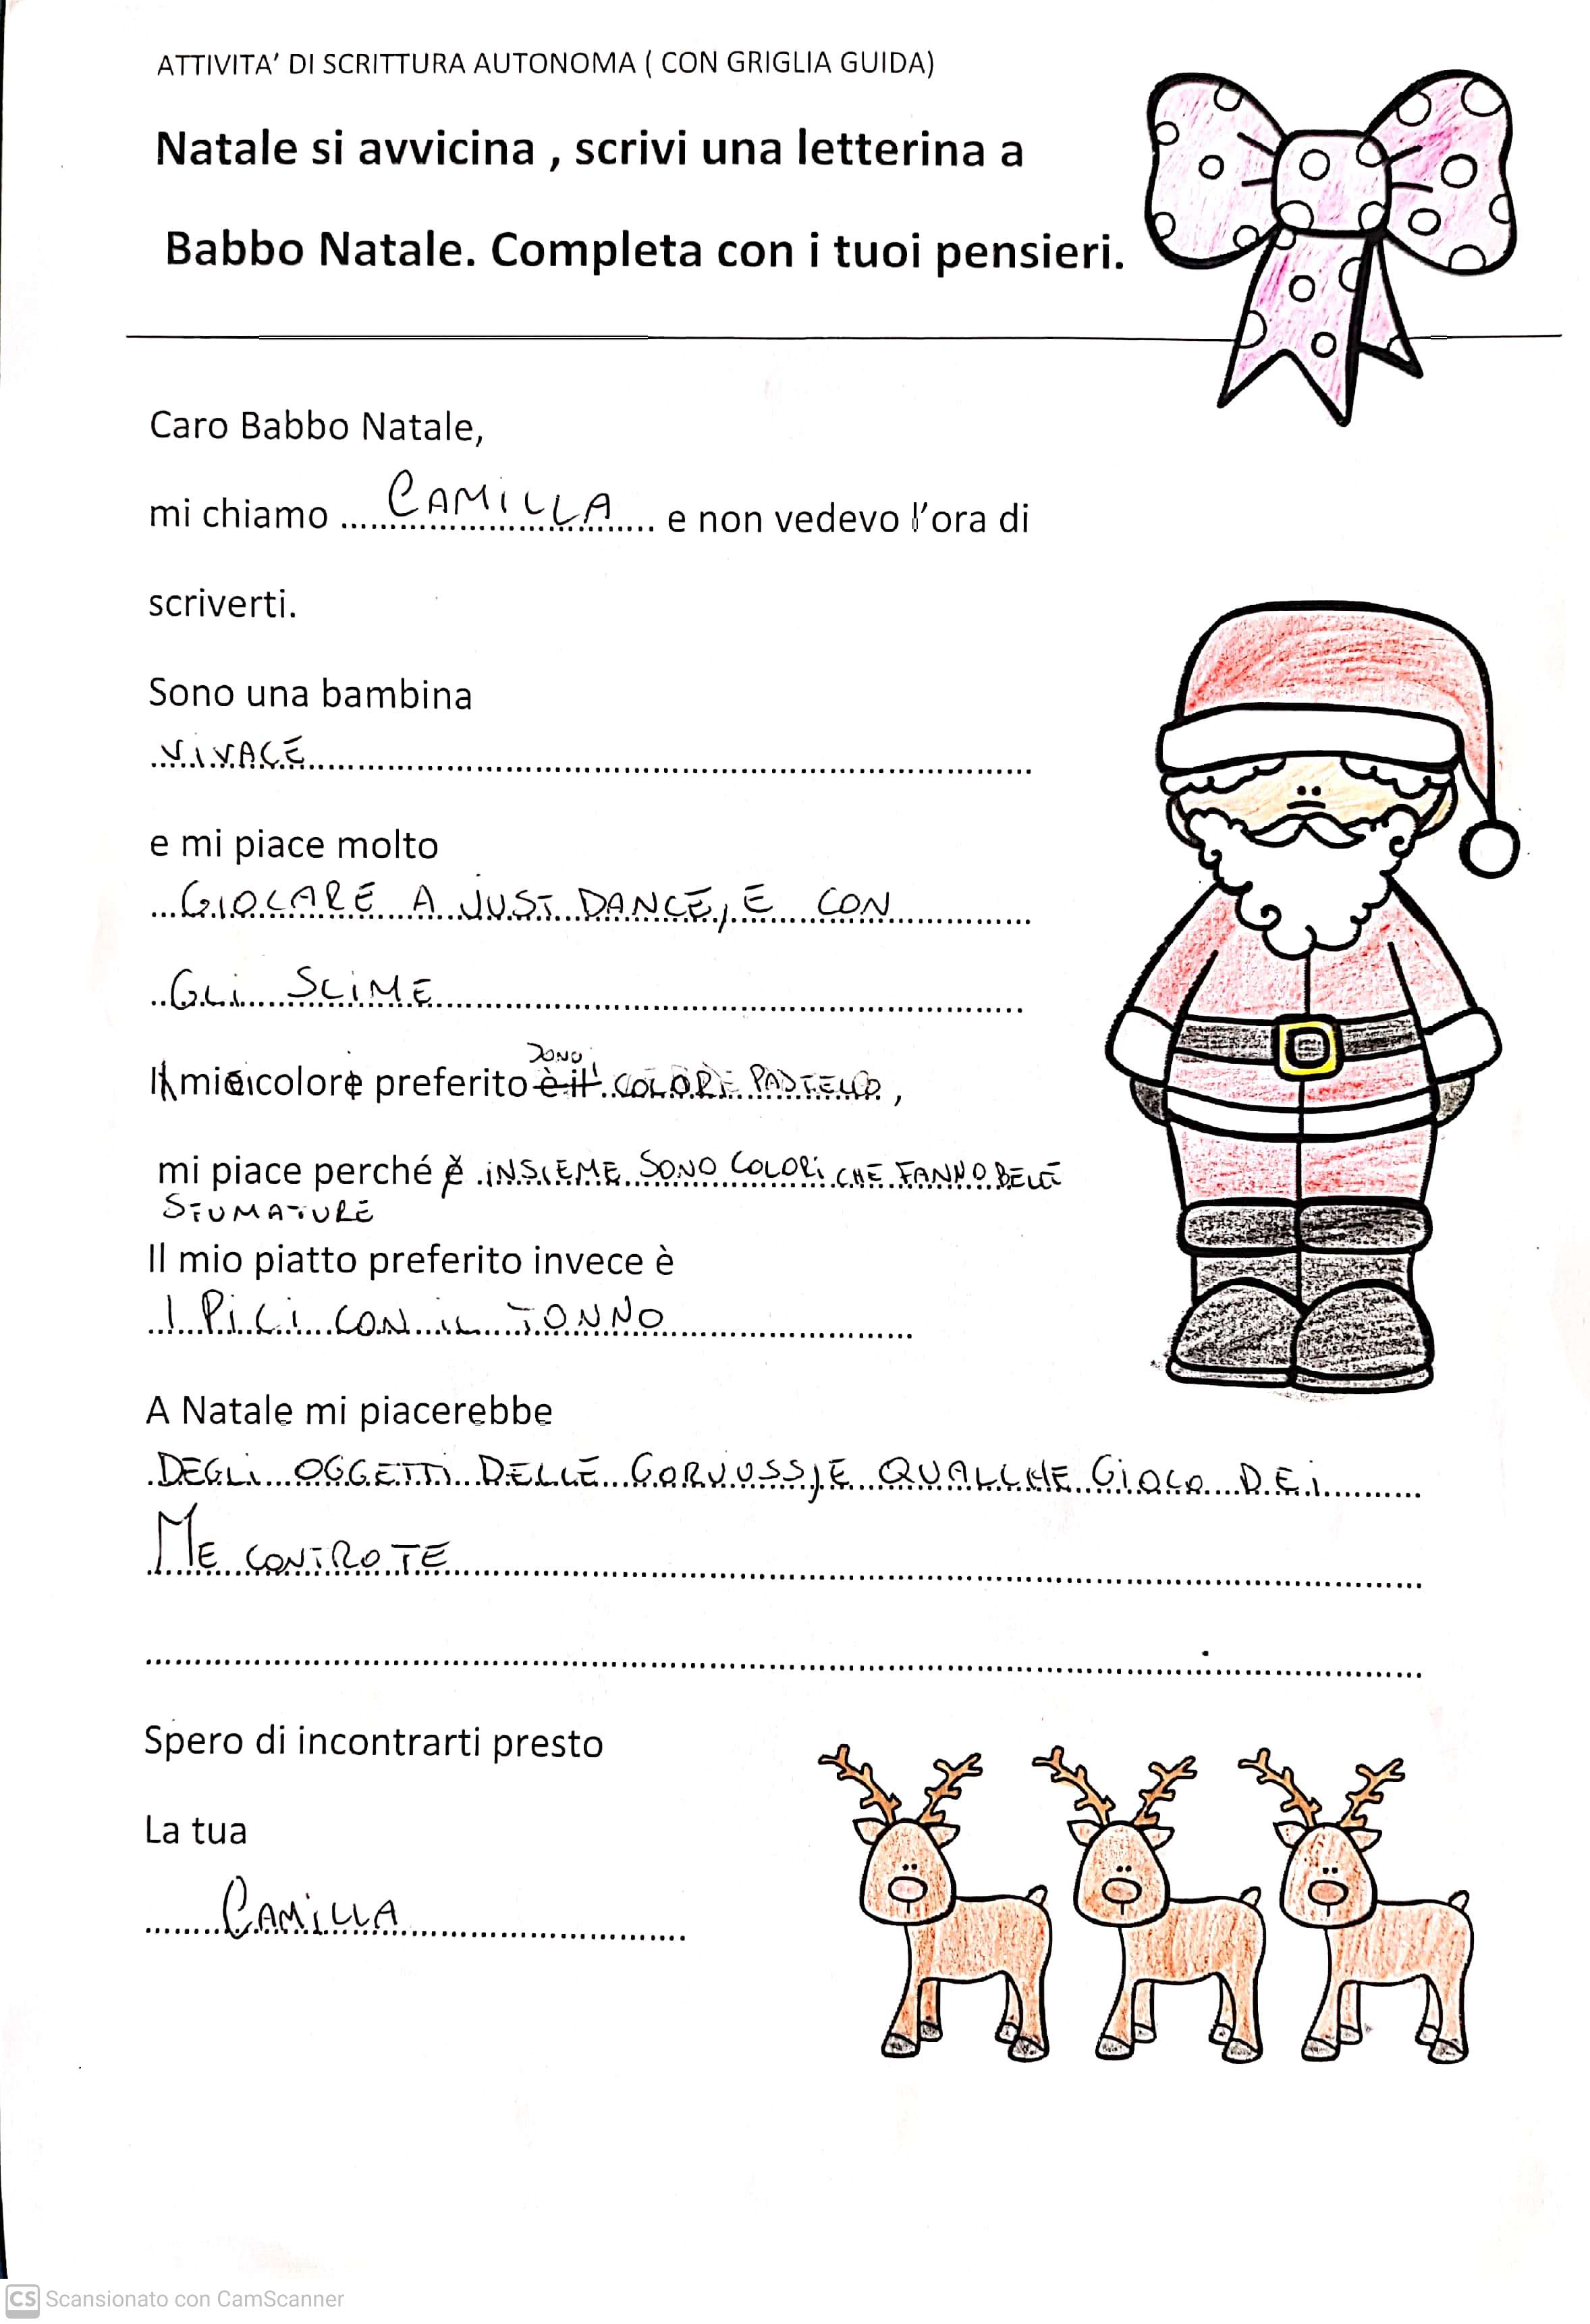 ATTIVITA' DI SCRITTURA AUTONOMA ( CON GRIGLIA GUIDA)
Natale si avvicina , scrivi una letterina a
Babbo Natale. Completa con i tuoi pensieri.
Caro Babbo Natale,
mi chiamo ... CAMILLA ... e non vedevo l'ora di
scriverti.
Sono una bambina
VIVACE
e mi piace molto
GIOCARE A JUST DANCE, E CON
GLI SLIME
I miei colori preferito SONO è il COLORI PASTELLO ,
mi piace perché è INSIEME SONO COLORI CHE FANNO BELLE
SFUMATURE
Il mio piatto preferito invece è
I PICI CON IL TONNO
A Natale mi piacerebbe
DEGLI OGGETTI DELLE GORJUSS, E QUALCHE GIOCO DEI
ME CONTRO TE
Spero di incontrarti presto
La tua
CAMILLA
CS Scansionato con CamScanner